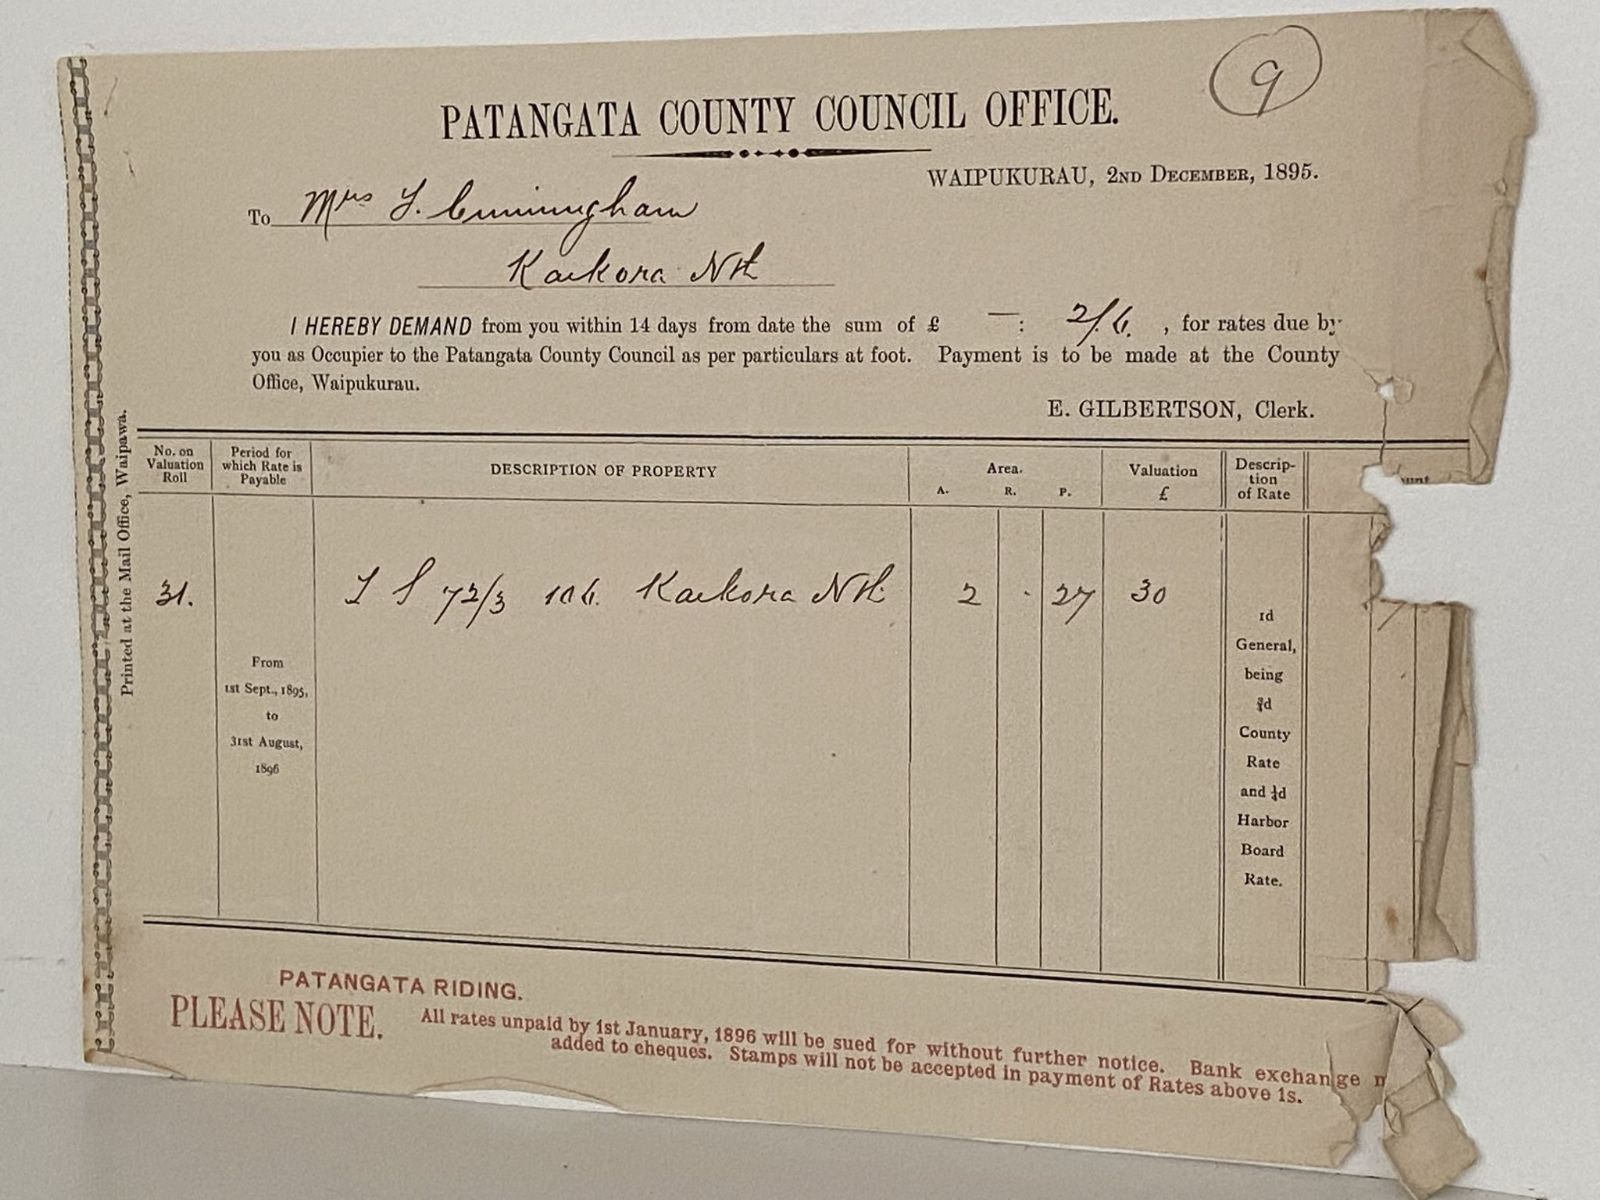 9
PATANGATA COUNTY COUNCIL OFFICE.
WAIPUKURAU, 2ND DECEMBER, 1895.
To Mrs J. Cunningham
Kaikora Nth
I HEREBY DEMAND from you within 14 days from date the sum of £ — : 2/6. , for rates due by
you as Occupier to the Patangata County Council as per particulars at foot. Payment is to be made at the County
Office, Waipukurau.
E. GILBERTSON, Clerk.
Printed at the Mail Office, Waipawa.
No. on Valuation Roll
Period for which Rate is Payable
DESCRIPTION OF PROPERTY
Area.
A. R. P.
Valuation £
Description of Rate
31. 72/3 106. Kaikora Nth 2 . 27 30
From
1st Sept., 1895,
to
31st August,
1896
1d
General,
being
¾d
County
Rate
and ¼d
Harbor
Board
Rate.
PATANGATA RIDING.
PLEASE NOTE.
All rates unpaid by 1st January, 1896 will be sued for without further notice. Bank exchange
added to cheques. Stamps will not be accepted in payment of Rates above 1s.